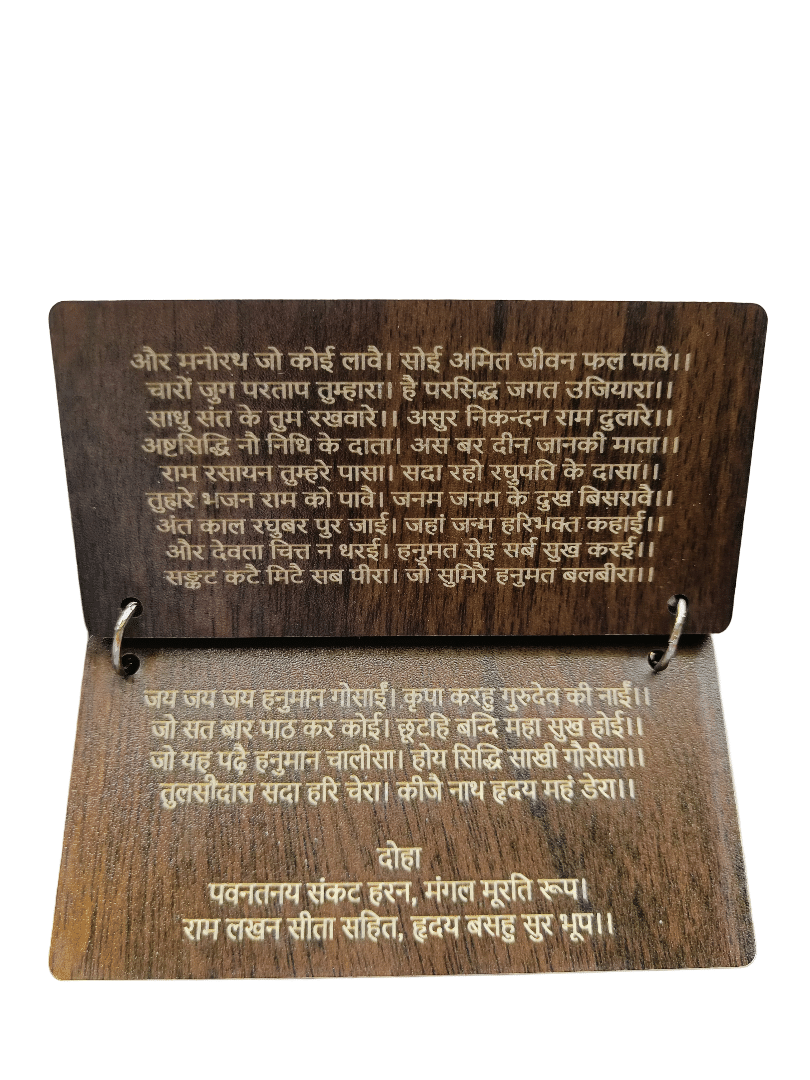 और मनोरथ जो कोई लावै। सोई अमित जीवन फल पावै।।
चारों जुग परताप तुम्हारा। है परसिद्ध जगत उजियारा।।
साधु संत के तुम रखवारे।। असुर निकन्दन राम दुलारे।।
अष्टसिद्धि नौ निधि के दाता। अस बर दीन जानकी माता।।
राम रसायन तुम्हरे पासा। सदा रहो रघुपति के दासा।।
तुहारे भजन राम को पावै। जनम जनम के दुख बिसरावै।।
अंत काल रघुबर पुर जाई। जहां जन्म हरिभक्त कहाई।।
और देवता चित्त न धरई। हनुमत सेइ सर्ब सुख करई।।
सङ्कट कटै मिटै सब पीरा। जो सुमिरै हनुमत बलबीरा।।
जय जय जय हनुमान गोसाईं। कृपा करहु गुरुदेव की नाईं।।
जो सत बार पाठ कर कोई। छूटहि बन्दि महा सुख होई।।
जो यह पढ़ै हनुमान चालीसा। होय सिद्धि साखी गौरीसा।।
तुलसीदास सदा हरि चेरा। कीजै नाथ हृदय महं डेरा।।
दोहा
पवनतनय संकट हरन, मंगल मूरति रूप।
राम लखन सीता सहित, हृदय बसहु सुर भूप।।